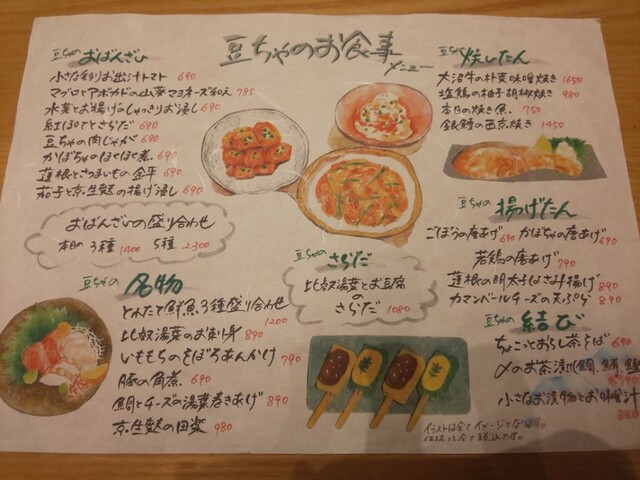 豆ちゃのお食事
メニュー
豆ちゃの おばんざい
小さな彩りお出汁トマト 690
マグロとアボカドの山葵マヨネーズ和え 785
水菜とお揚げのしゃっきりお浸し 690
紅ぽてとさらだ 690
豆ちゃの肉じゃが 690
かぼちゃのほくほく煮 690
蓮根とさつまいもの金平 690
茄子と京生麩の揚げ浸し 690
おばんざいの盛り合わせ
本日の3種 1400 5種 2300
豆ちゃの 名物
とれたて鮮魚3種盛り合わせ 1200
比叡湯葉のお刺身 890
いももちのそぼろあんかけ 790
豚の角煮 690
鯛とチーズの湯葉巻きあげ 890
京生麩の田楽 980
豆ちゃの さらだ
比叡湯葉とお豆腐
の
さらだ 1080
豆ちゃの 焼したん
大沼牛の朴葉味噌焼き 1650
塩鶏の柚子胡椒焼き 980
本日の焼き魚 750
銀鱈の西京焼き 1450
豆ちゃの 揚げたん
ごぼうの唐あげ 690 かぼちゃの唐あげ 690
若鶏の唐あげ 790
蓮根の明太子はさみ揚げ 890
カマンベールチーズの天ぷら 890
豆ちゃの 結び
ちょこっとおろし茶そば 690
〆のお茶漬け(鯛、鮪、鰻
小さなお漬物とお味噌汁
イラストは全てイメージとなります。